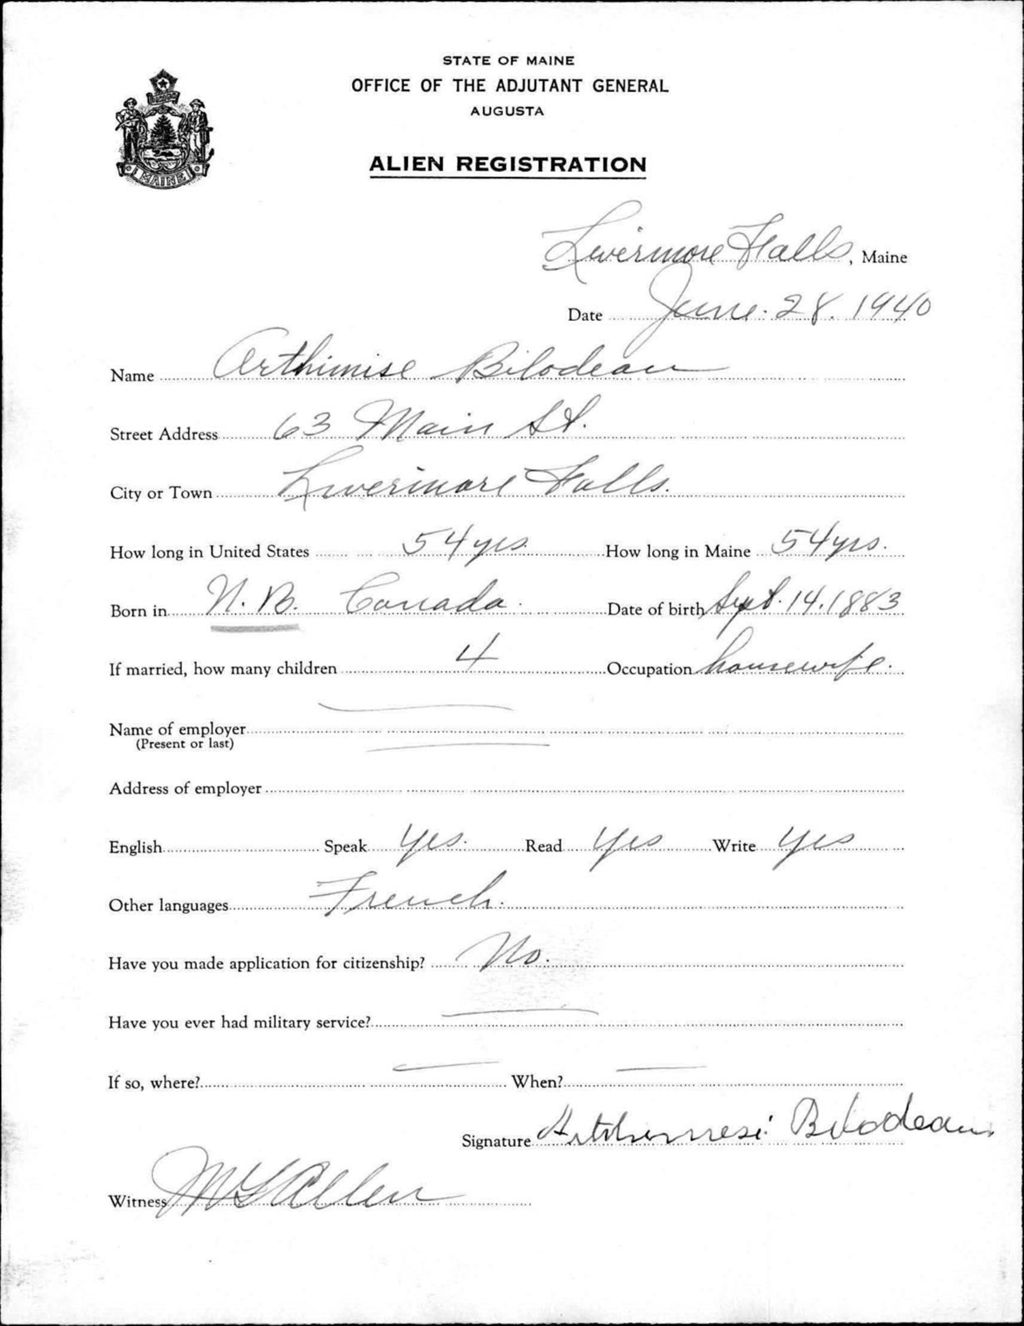 STATE OF MAINE
OFFICE OF THE ADJUTANT GENERAL
AUGUSTA
ALIEN REGISTRATION
MAINE
Livermore Falls, Maine
Date June. 28. 1940
Name Arthimise Bilodeau
Street Address 63 Main St.
City or Town Livermore Falls.
How long in United States 54 yrs. How long in Maine 54 yrs.
Born in N. B. Canada. Date of birth Sept. 14. 1883
If married, how many children 4 Occupation housewife.
Name of employer
(Present or last)
Address of employer
English Speak Yes. Read Yes Write Yes
Other languages French.
Have you made application for citizenship? No.
Have you ever had military service?
If so, where? When?
Signature Bilodeau
Witness Allen